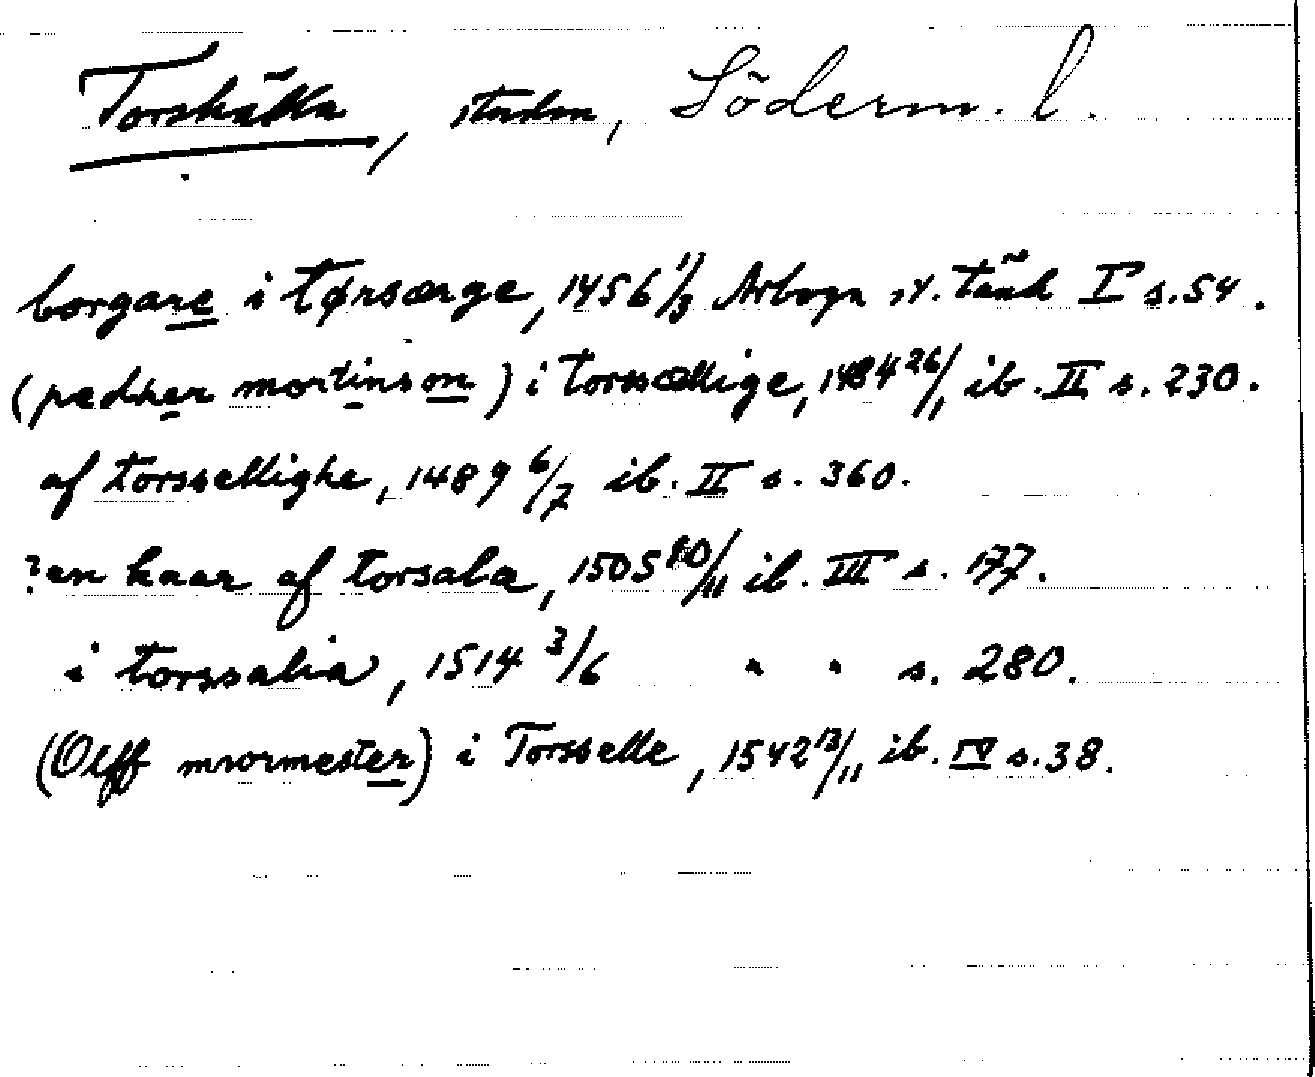 Torshälla, staden, Söderm. l.
borgare i tørsærge, 1456 1/3 Arboga st. tänk I s. 54.
(pædher mortinson) i torssællige, 1484 26/1, ib. II s. 230.
af torssellighe, 1489 6/7 ib. II s. 360.
?en knar af torsala, 1505 10/11 ib. III s. 177.
i torssalia, 1514 3/6 " " s. 280.
(Olff mwrmester) i Torsselle, 1542 13/11 ib. IV s. 38.